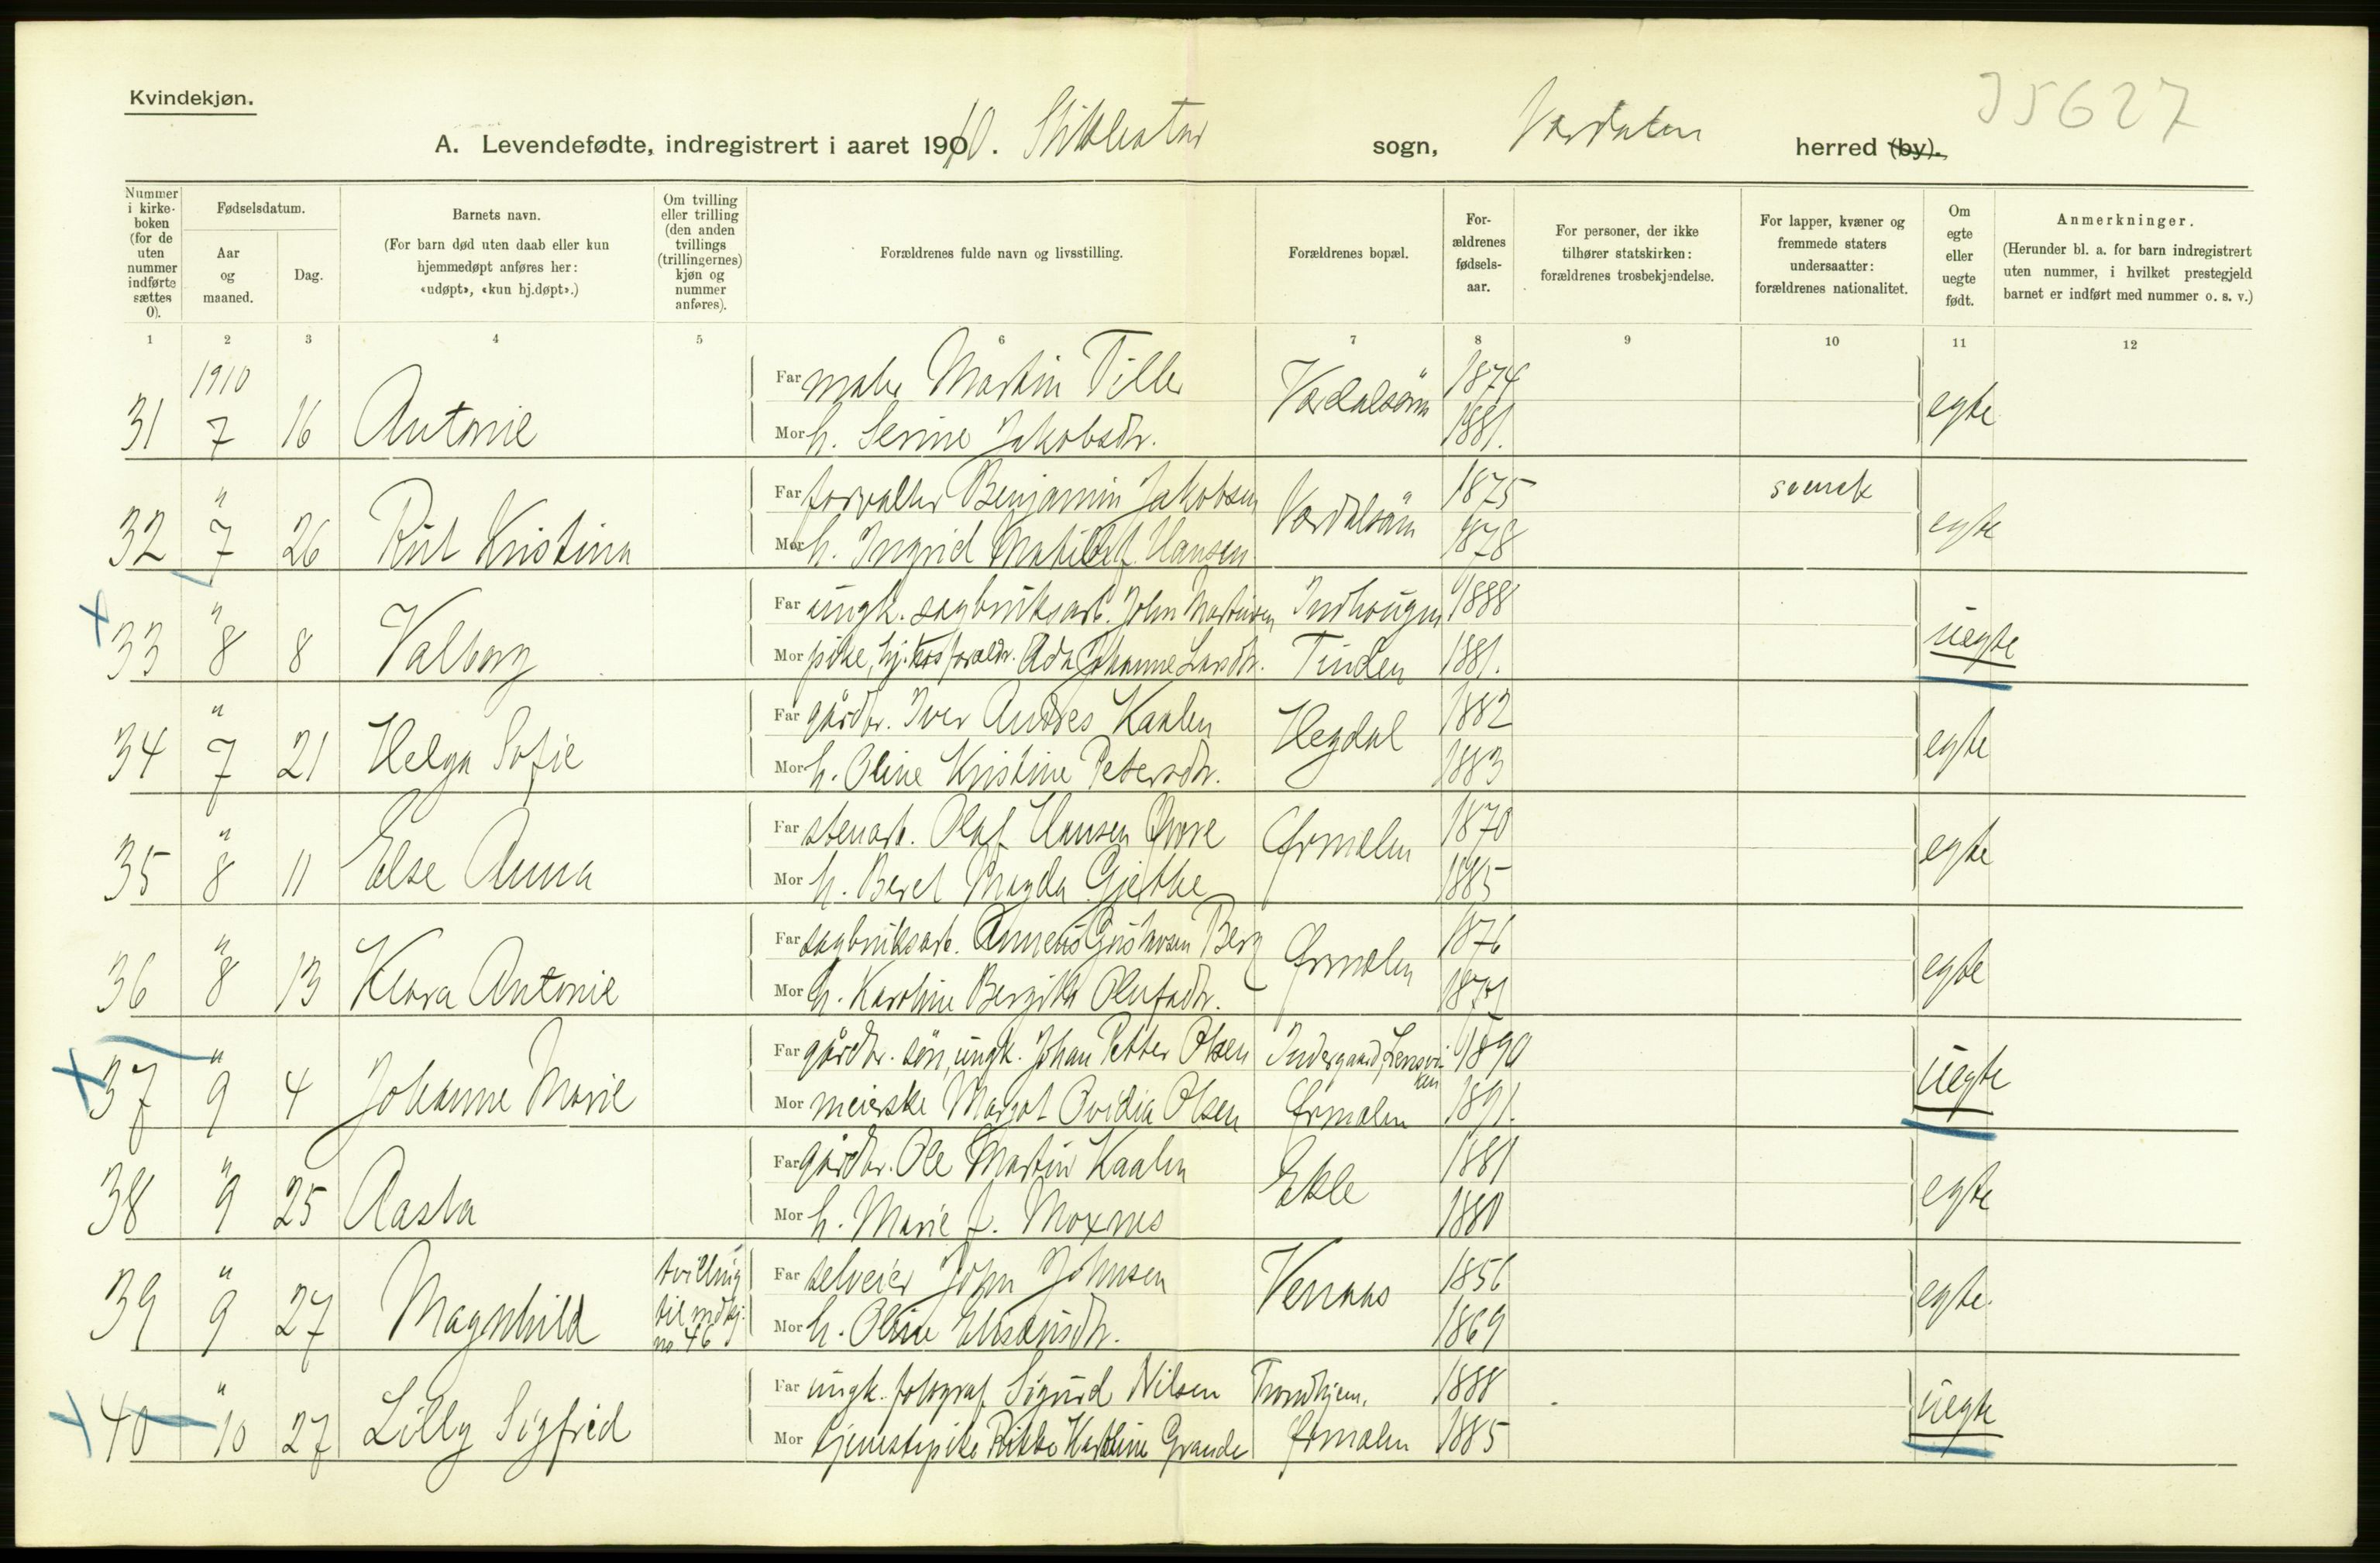 Kvindekjøn.
J5627
A. Levendefødte, indregistrert i aaret 1910. Stiklestad sogn, Værdalen herred (by).
Nummer i kirkeboken (for de uten nummer indførte sættes 0).
Fødselsdatum.
Aar og maaned.
Dag.
Barnets navn.
(For barn død uten daab eller kun hjemmedøpt anføres her: «udøpt», «kun hj.døpt».)
Om tvilling eller trilling (den anden tvillings (trillingernes) kjøn og nummer anføres).
Forældrenes fulde navn og livsstilling.
Forældrenes bopæl.
Forældrenes fødselsaar.
For personer, der ikke tilhører statskirken: forældrenes trosbekjendelse.
For lapper, kvæner og fremmede staters undersaatter: forældrenes nationalitet.
Om egte eller uegte født.
Anmerkninger.
(Herunder bl. a. for barn indregistrert uten nummer, i hvilket prestegjeld barnet er indført med nummer o. s. v.)
1 2 3 4 5 6 7 8 9 10 11 12
1910
Far maler Martin Tiller Værdalsøren 1874
31 7 16 Antonie egte
Mor h. Serine Jakobsdtr. 1881.
Far forvalter Benjamin Jakobsen Værdalsøren 1875 svensk
32 " 7 26 Rut Kristina egte
Mor h. Ingrid Matilde f. Hansen 1878
Far ungk. sagbruksarb. John Martinsen Indhougen 1888
33 " 8 8 Valborg uegte
Mor pike, hj. hos foreldr. Ada Johanne Larsdtr. Tinden 1881.
Far gårdbr. Iver Andres Kaalen Hegdal 1882
34 " 7 21 Helga Sofie egte
Mor h. Oline Kristine Petersdtr. 1883
Far stenarb. Olaf Hansen Ørmelen 1870
35 " 8 11 Else Anna egte
Mor h. Beret Magda Gjethe 1885
Far sagbruksarb. Gustavsen Berg Ørmelen 1876
36 " 8 13 Klara Antonie egte
Mor h. Karoline Bergitta Olufsdtr.
Far gårdbr. søn, ungk. Johan Petter Olsen Indergaard, Lensviken 1890
37 " 9 4 Johanne Marie uegte
Mor meierske Margot Ovidia Olsen Ørmelen 1891.
Far gårdbr. Ole Martin Kaalen Ekle 1881
38 " 9 25 Aasta egte
Mor h. Marie f. Moxnes 1880
Far selveier John Johnsen Vernaas 1856
39 " 9 27 Magnhild tvilling til mdkj. no 46 egte.
Mor h. Oline Eliseusdtr. 1869
Far ungk. fotograf Sigurd Nilsen Trondhjem. 1888
40 " 10 27 Lilly Sigfrid uegte
Mor tjenestepike Rikke Karoline Grande Ørmelen 1885